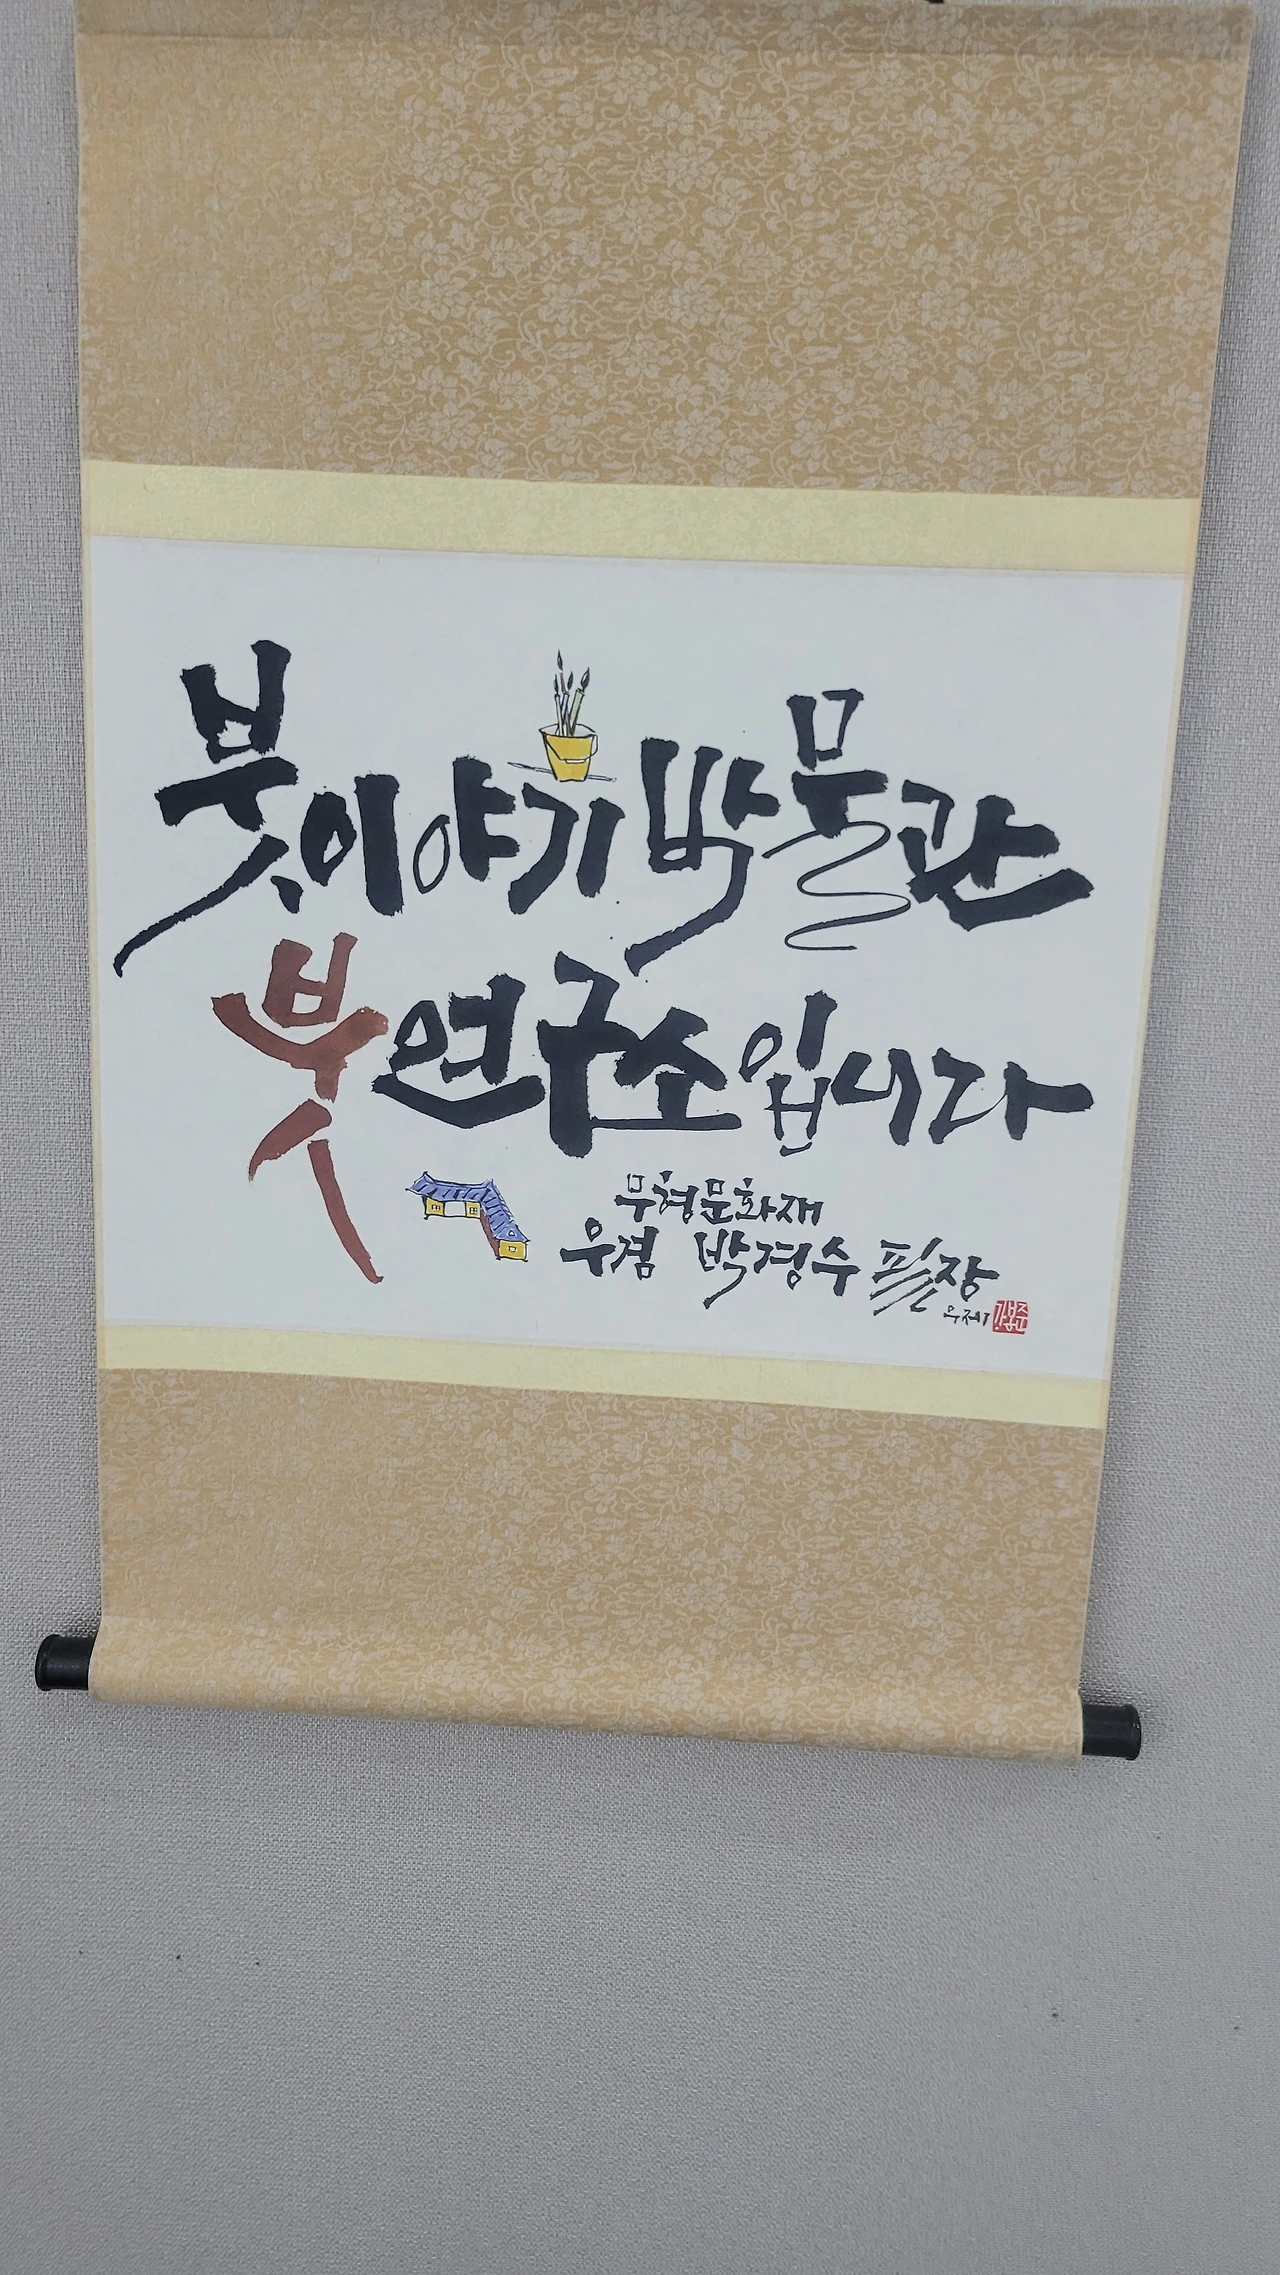 붓이야기 박물관
붓 연구소입니다
무형문화재
우겸 박경수 필장